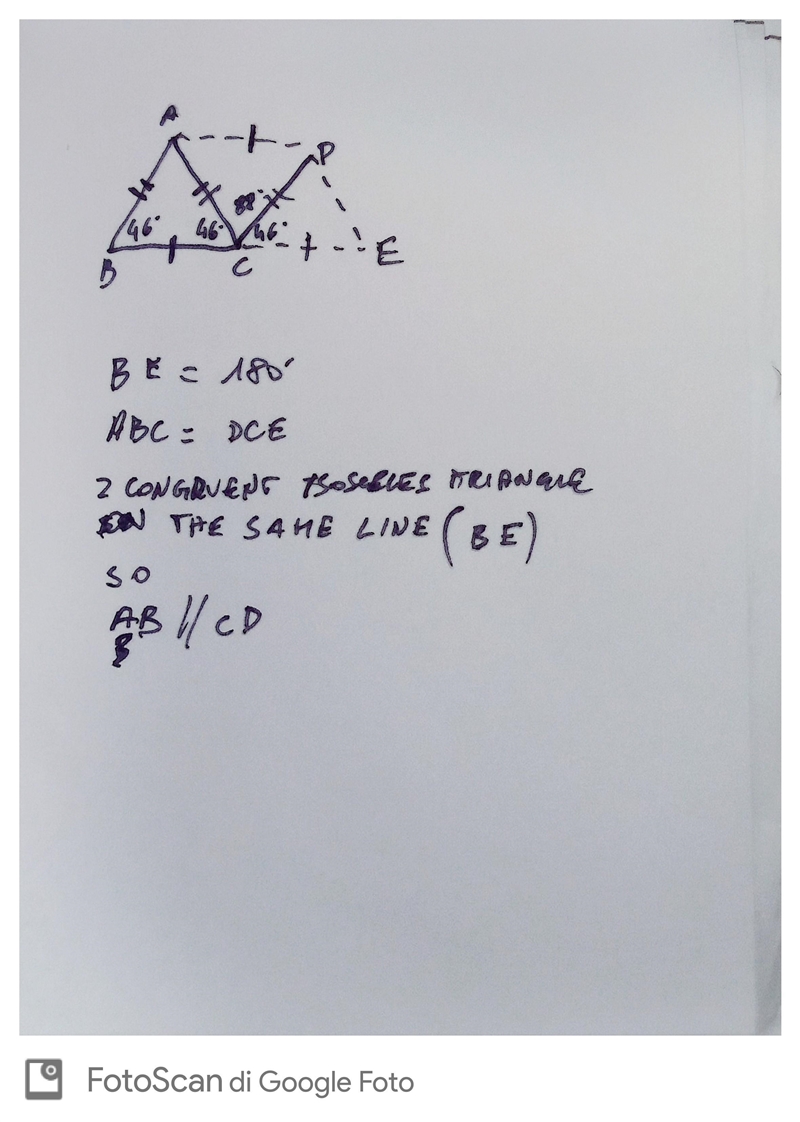 A
P
88°
46°
46°
46°
B
C
E
BE = 180°
ABC = DCE
2 CONGRUENT ISOSCELES TRIANGLE
ON THE SAME LINE (BE)
SO
AB // CD
B
FotoScan di Google Foto